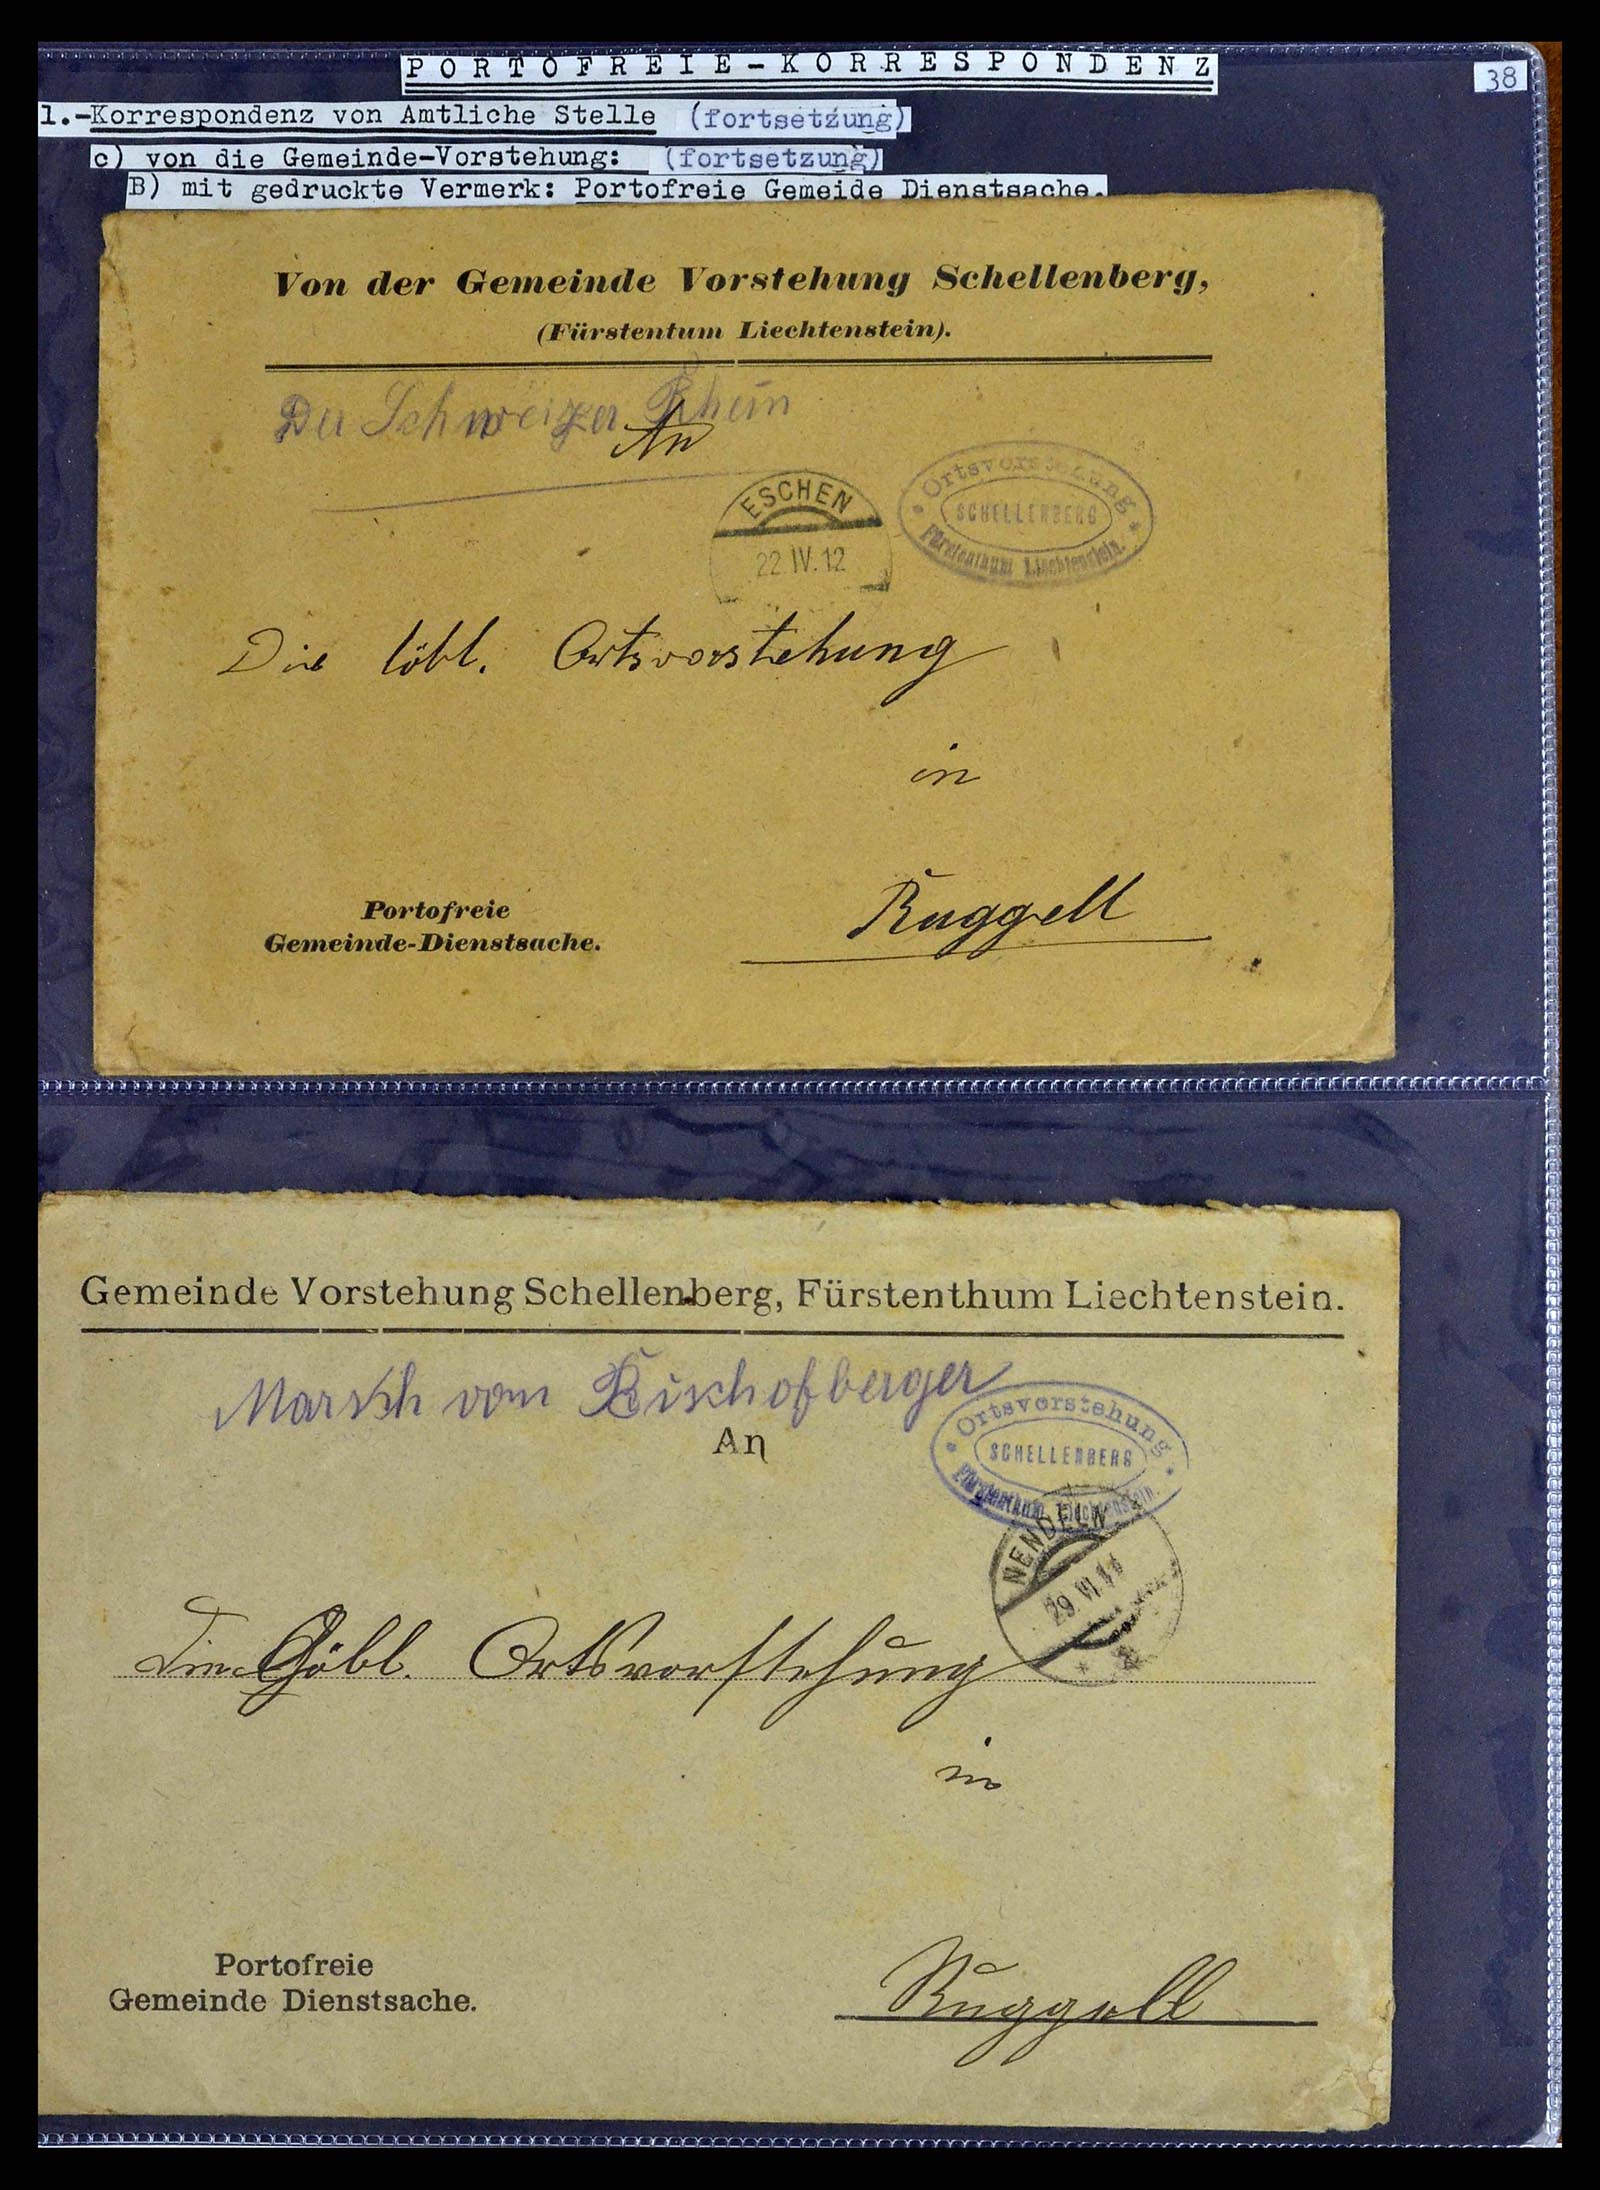 PORTOFREIE-KORRESPONDENZ
38
1.-Korrespondenz von Amtliche Stelle (fortsetzung)
c) von die Gemeinde-Vorstehung: (fortsetzung)
B) mit gedruckte Vermerk: Portofreie Gemeide Dienstsache.
Von der Gemeinde Vorstehung Schellenberg,
(Fürstentum Liechtenstein).
Der Schweizer Rhein
An
ESCHEN
22 IV. 12
Ortsvorstehung
SCHELLENBERG
Fürstenthum Liechtenstein.
Die löbl. Ortsvorstehung
in
Ruggell
Portofreie
Gemeinde-Dienstsache.
Gemeinde Vorstehung Schellenberg, Fürstenthum Liechtenstein.
Marsch vom Bischofberger
An
Ortsvorstehung
SCHELLENBERG
Fürstenthum Liechtenstein.
NENDELN
29 VI
Die löbl. Ortsvorstehung
in
Ruggell
Portofreie
Gemeinde Dienstsache.